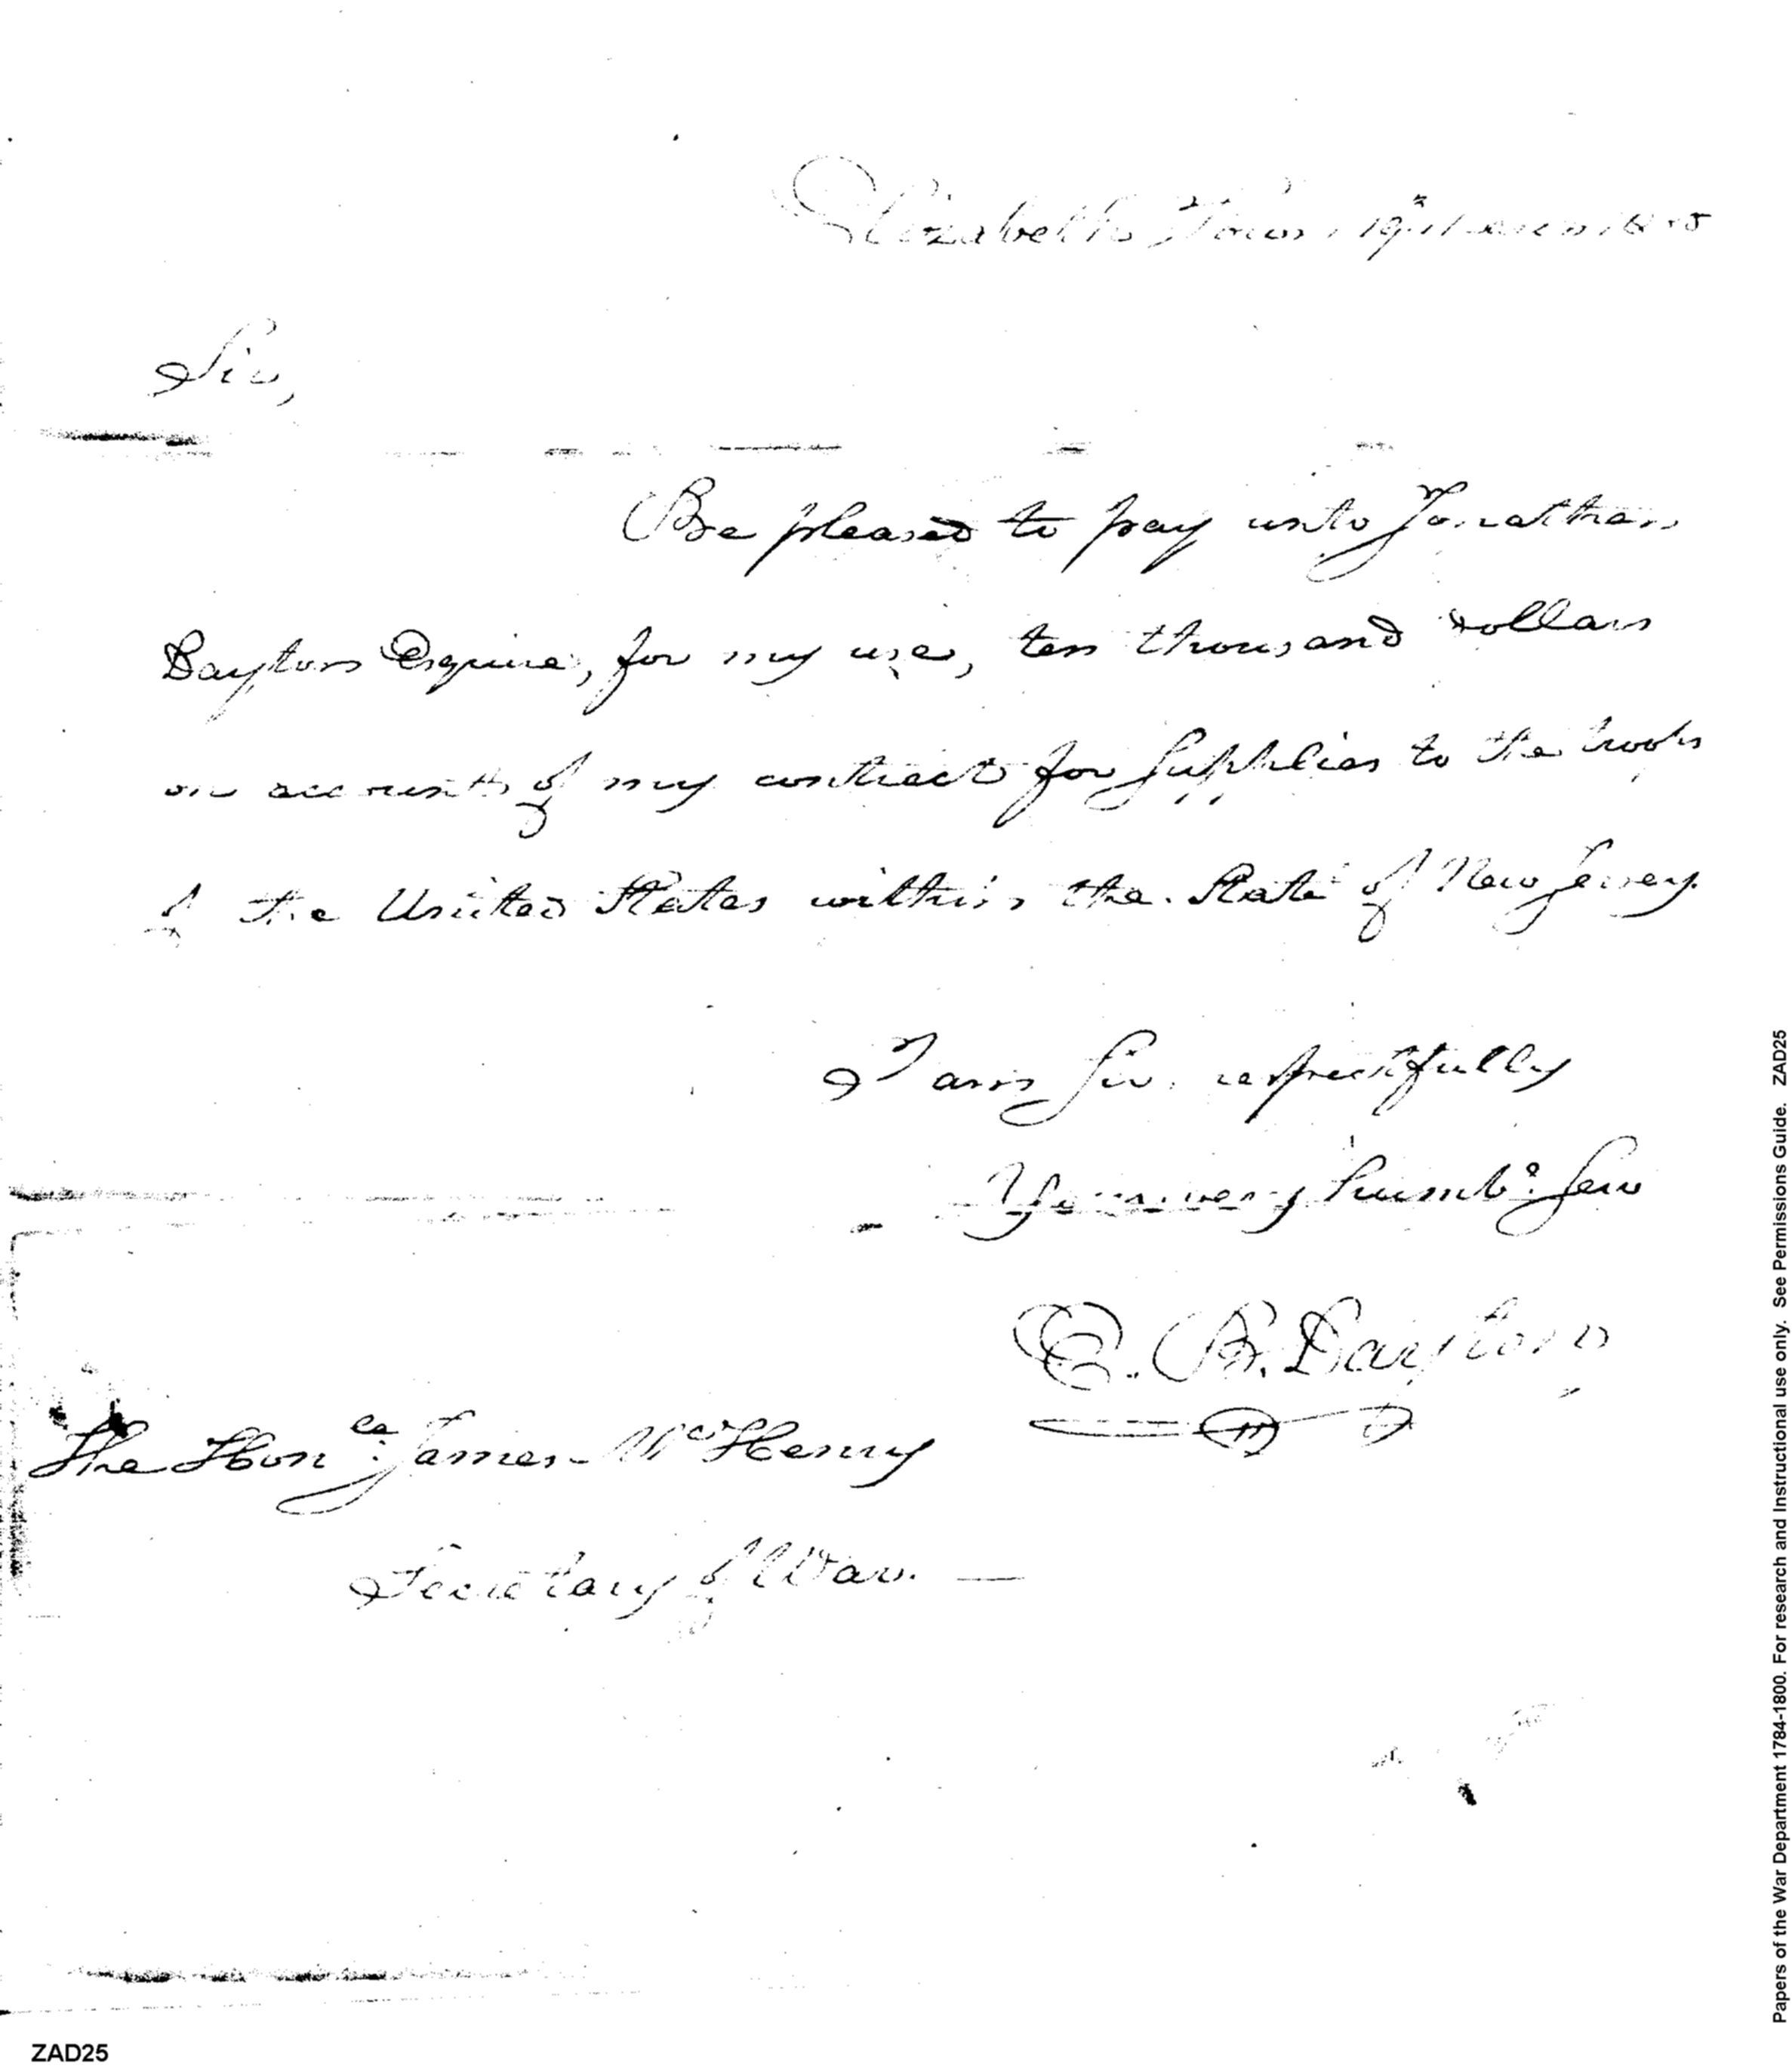 Elizabeth Town 19th
Sir,
Be pleased to pay unto Jonathan
Dayton Esquire, for my use, ten thousand dollars
on account of my contract for Supplies to the troops
of the United States within the State of New Jersey.
I am Sir, respectfully
Your very humbe. Serv
E. B. Dayton
The Honble: James McHenry
Secretary of War. —
Papers of the War Department 1784-1800. For research and Instructional use only. See Permissions Guide. ZAD25
ZAD25